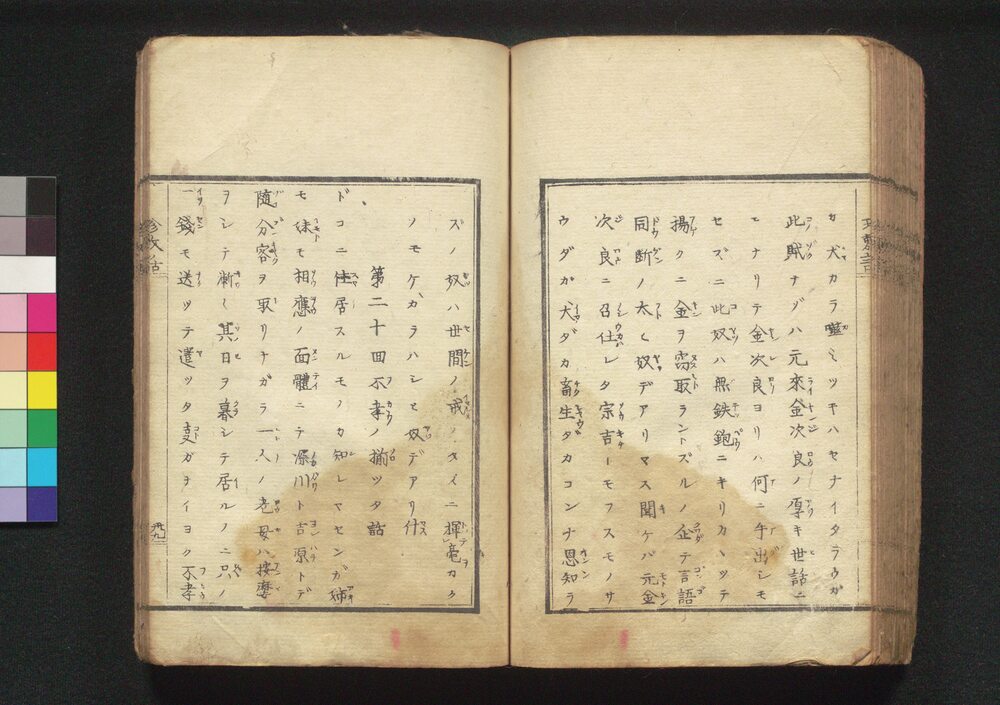 カ犬カラ噬ミツキハセナイタラウガ
此賊ナゾハ元來金次良ノ厚キ世話ニ
モナリテ金次良ヨリハ何ニ手出シモ
セズニ此奴ハ無鉄鉋ニキリカヽツテ
揚クニ金ヲ窃取ラントズルノ企テ言語
同断ノ太ヒ奴デアリマス聞ケバ元金
次良ニ召仕レタ宗吉ーモフスモノサ
ウダガ犬ダカ畜生タカコンナ恩知ラ
ズノ奴ハ世間ノ戒ノタイニ揮毫カク
ノモケガラハシヒ奴デアリ
第二十回不孝ノ揃ツタ話
ドコニ住居スルモノカ知レマセンガ姉
モ妹モ相應ノ面體ニテ深川ト吉原トデ
随分客ヲ取リナガラ一人ノ老母ハ按摩
ヲシテ漸ク其日ヲ暮シテ居ルノニ只ノ
一錢モ送ツテ遣ツタ支ガナイヨク不孝